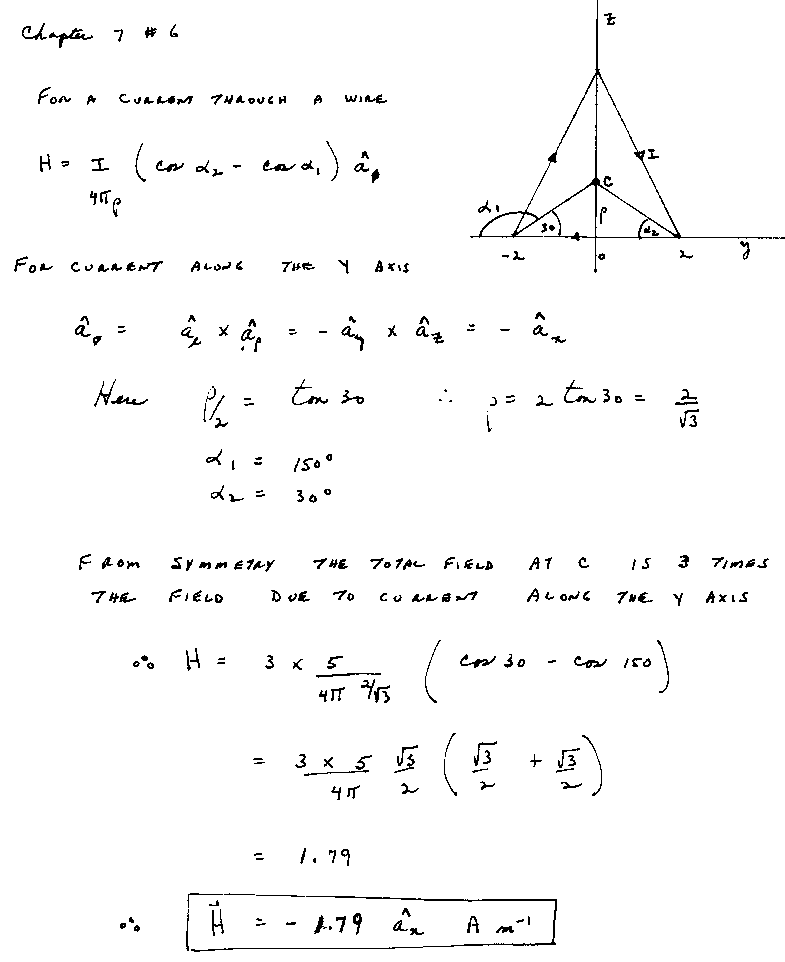 Chapter 7 # 6
z
FOR A CURRENT THROUGH A WIRE
H = I/4πρ ( cos α₂ - cos α₁ ) â_φ
I
C
ρ
α₁
30
α₂
-2
0
2
y
FOR CURRENT ALONG THE Y AXIS
â_φ = â_ℓ × â_ρ = - â_y × â_z = - â_x
Here ρ/2 = tan 30 ∴ ρ = 2 tan 30 = 2/√3
α₁ = 150°
α₂ = 30°
FROM SYMMETRY THE TOTAL FIELD AT C IS 3 TIMES
THE FIELD DUE TO CURRENT ALONG THE Y AXIS
∴ H = 3 × 5/(4π 2/√3) ( cos 30 - cos 150 )
= 3 × 5/4π √3/2 ( √3/2 + √3/2 )
= 1.79
∴ H⃗ = - 1.79 â_x A m⁻¹